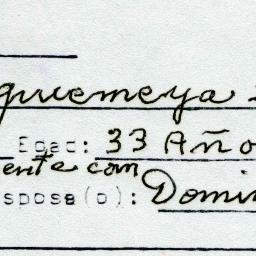 quemeya
Edad: 33 Año
ente con
sposa(o): Domin